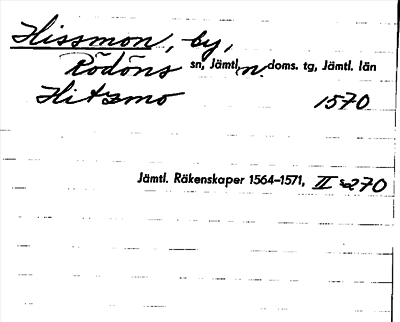 Hissmon, by,
Rödöns sn, Jämtl. n. doms. tg, Jämtl. län
Hitzmo 1570
Jämtl. Räkenskaper 1564–1571, II s 270